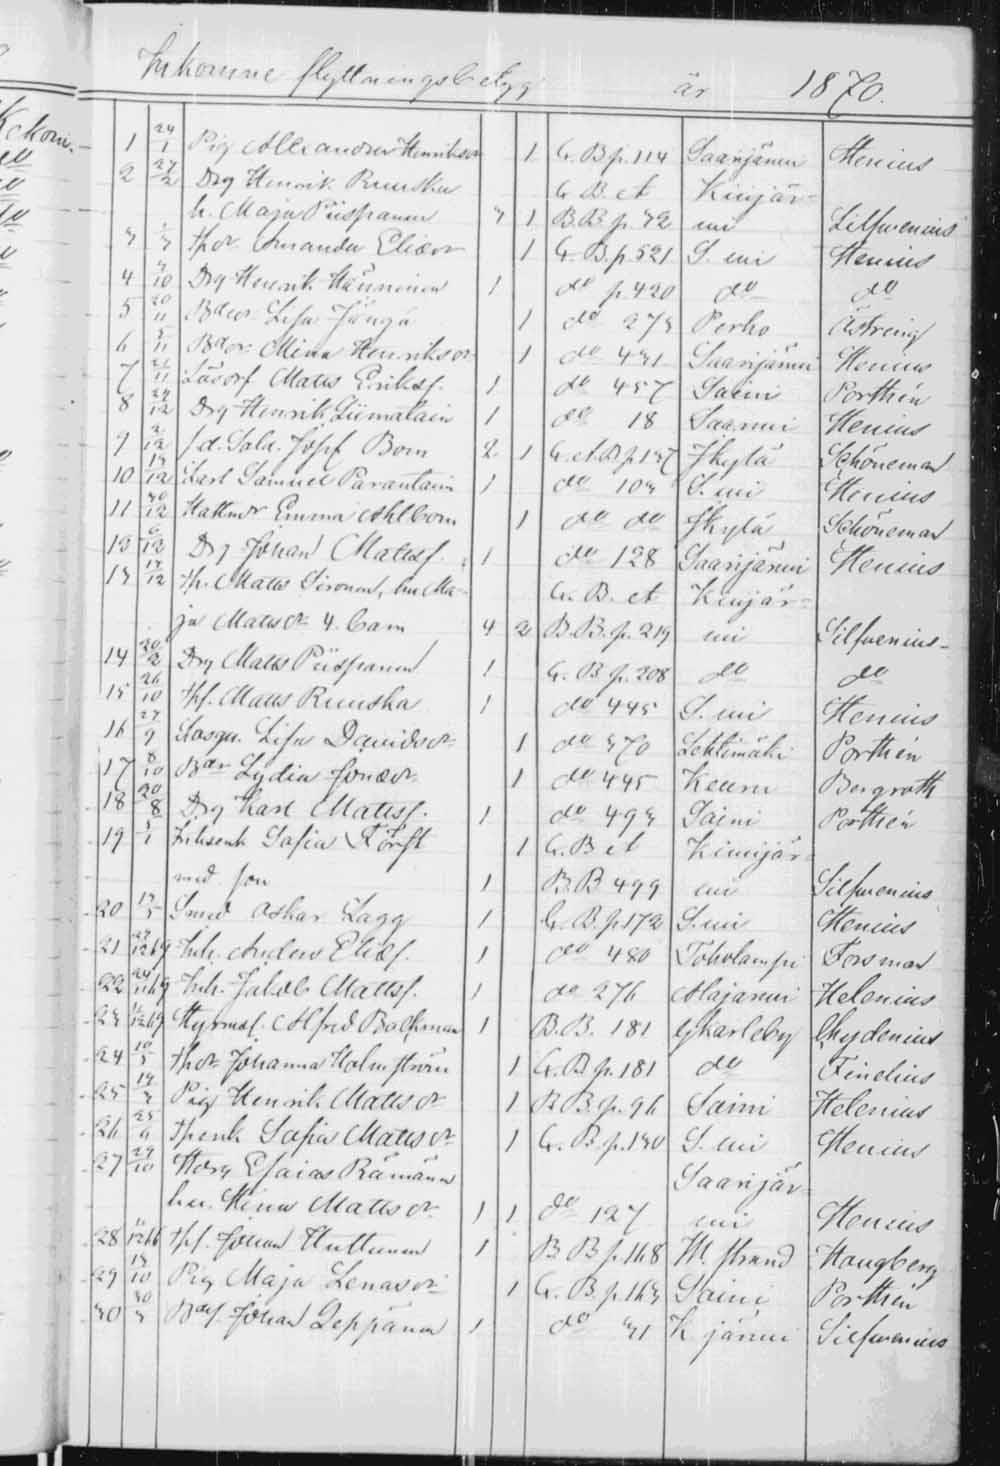 Inkomne flyttningsbetyg år 1870.
1 24/1 Pig Alexandra Henriksdr 1 C. B. p. 114 Saarijärvi Stenius
2 27/2 Drg Henrik Ruuska C. B. et Kivijär-
h. Maja Piispanen 3 1 B. B. p. 72 vi Silfvenius
3 Thdr. Amanda Eliædr 1 C. B. p 521 S. vi Stenius
4 3/10 Drg Henrik Hänninen 1 do p. 420 do do
5 20/11 Bdr. Lisa 1 do 273 Perho
6 5/11 Bdr. Mina Henriksdr 1 do 431 Saarijärvi Stenius
7 21/11 Lösdrf Matts Eriksf. 1 do 457 Soini Porthén
8 29/12 Drg Henrik Liimatain 1 do 18 Saarvi Stenius
9 2/12 f. d. Sold. Josef Born 2 1 C. et. B. p 137 Jkylä Schöneman
10 13/12 Karl Samuel Parantain 1 do 103 S. vi Stenius
11 30/12 Emma Ahlbom 1 do do Jkylä Schöneman
12 6/12 Drg Johan Mattsf. 1 do 128 Saarijärvi Stenius
13 17/12 Th. Matts hu Ma- C. B. et Kivijär-
ja Mattsdr 4. barn 4 2 B. B. p. 219 vi Silfvenius
14 20/2 Drg Matts Piispanen 1 C. B. p. 208 do do
15 26/10 Thf. Matts Ruuska 1 do 445 S. vi Stenius
16 27/9 Lisa Davidsdr 1 do 370 Lehtimäki Porthén
17 8/10 Bdr Lydia Jonædr 1 do 445 Keuru Bergroth
18 20/8 Drg Karl Mattsf. 1 do 493 Soini Porthén
19 Inhsenk Sofia 1 C. B et Kivijär-
med son 1 B. B 499 vi Silfvenius
20 13/5 Smed Oskar Lagg 1 C. B. p. 172 S. vi Stenius
21 22/12 69 Inh. Anders Eliæf. 1 do 480 Toholampi Forsman
22 24/11 69 Inh. Jakob Mattsf. 1 do 276 Alajärvi Helenius
23 12/12 69 Alfred Backman 1 B. B. 181 Gkarleby Chydenius
24 10/5 Thdr Johanna Holmström 1 C. B p. 181 do Findlius
25 14/3 Pig Henrik. Mattsdr 1 B B. p. 96 Soini Helenius
26 25/9 Thenk Sofia Mattsdr 1 C. B. p. 130 S. vi Stenius
27 29/10 Esaias Rämänen Saarijär-
hu. Stina Mattsdr 1 1 do 127 vi Stenius
28 11/12 66 Thf. Johan Huttunen 1 B B p. 168 Haugberg
29 13/10 Pig Maja Lenasdr 1 C. B. p. 163 Soini Porthén
30 30/3 Bdf. Johan Leppänen 1 do 31 K järvi Silfvenius